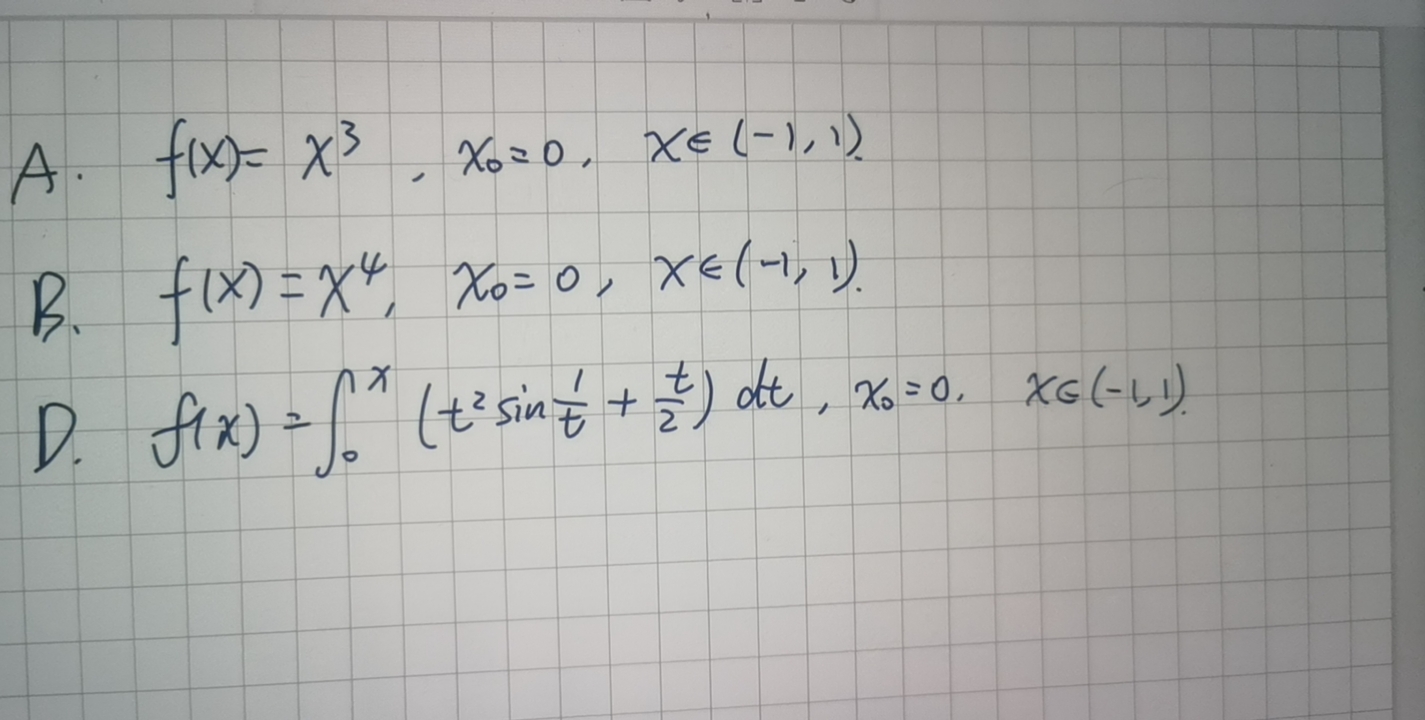 A. f(x)= x³, x₀=0, x∈(-1,1).
B. f(x)=x⁴, x₀=0, x∈(-1,1).
D. f(x)=∫₀ˣ (t² sin 1/t + t/2) dt, x₀=0. x∈(-1,1).